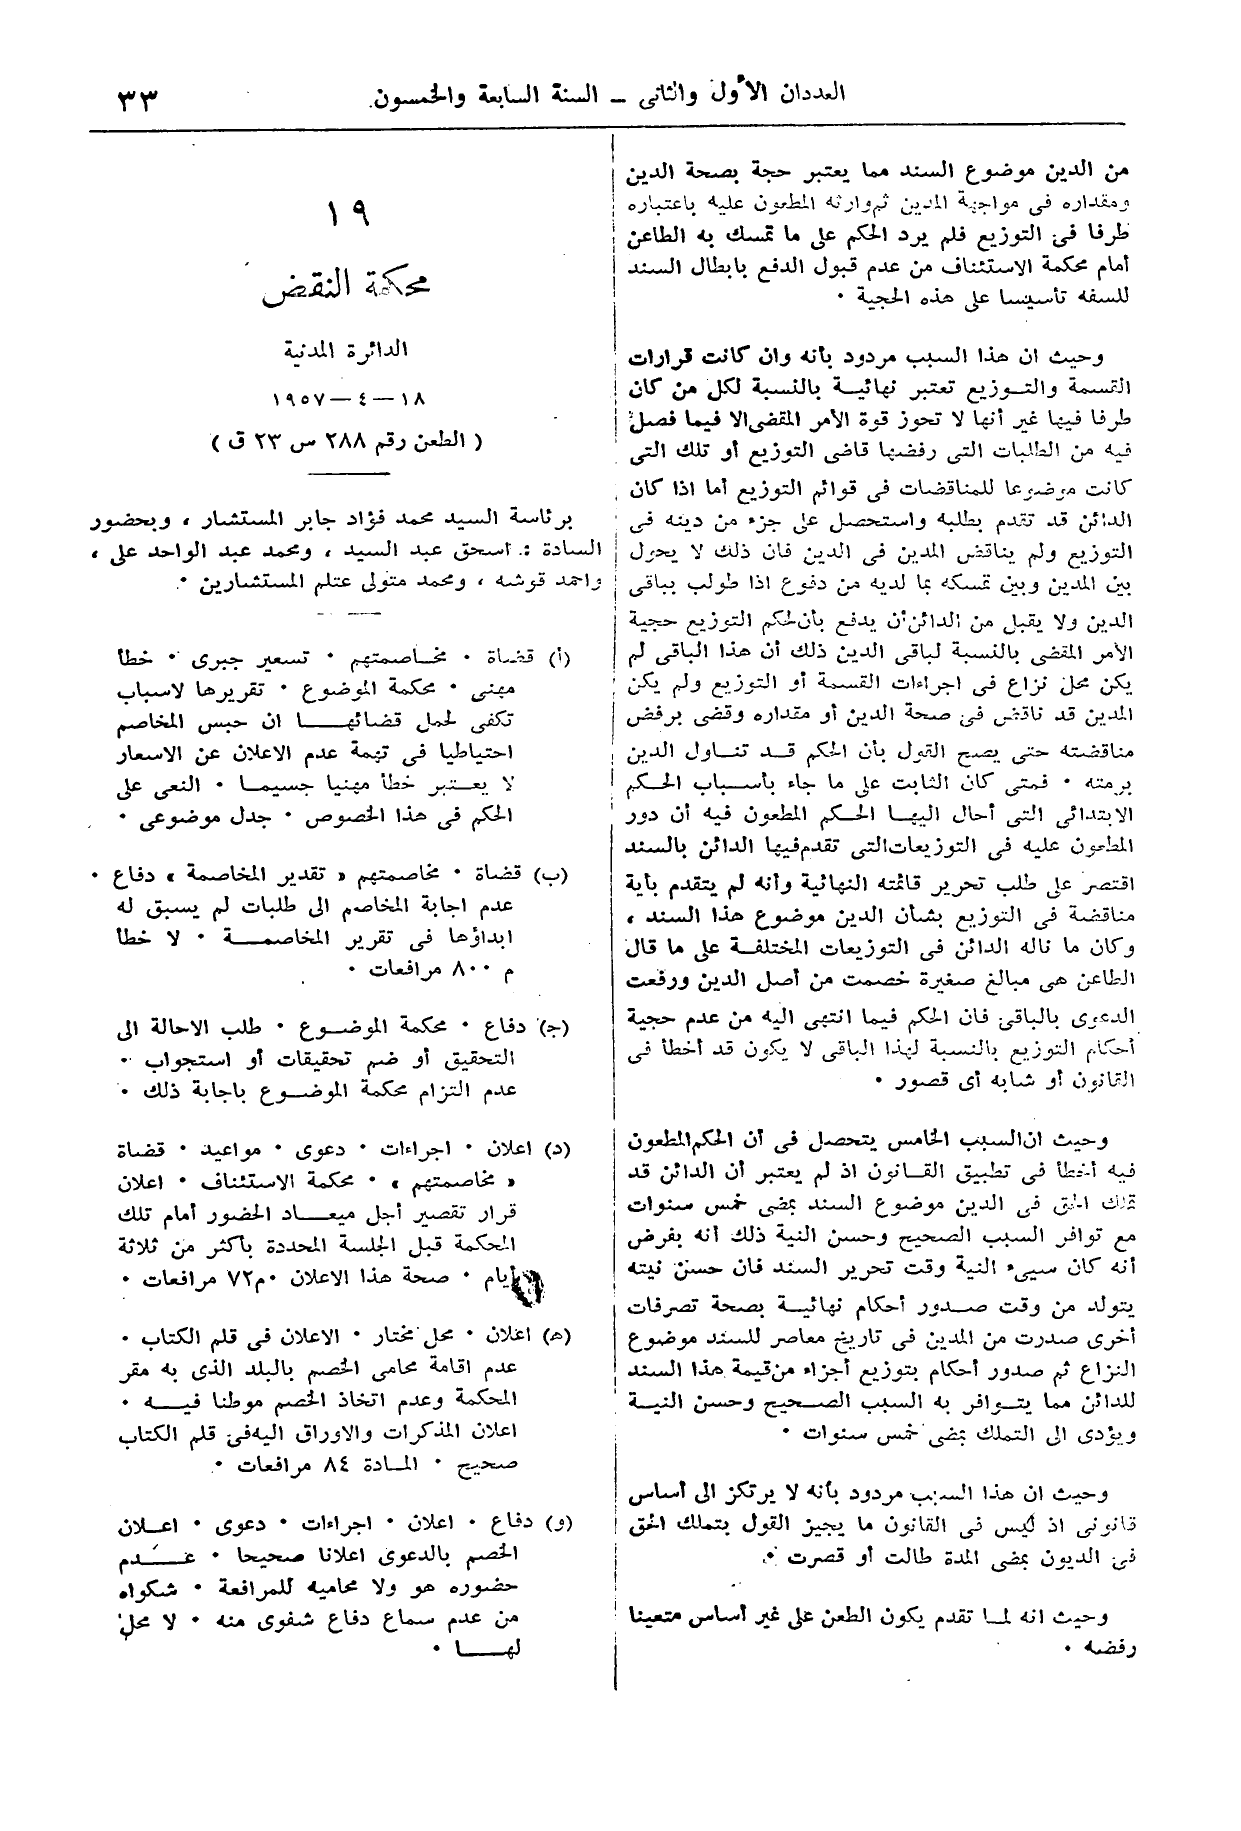 العددان الأول والثانى – السنة السابعة والخمسون
٣٣
من الدين موضوع السند مما يعتبر حجة بصحة الدين
ومقداره فى مواجهة المدين ثم وارثه المطعون عليه باعتباره
طرفا فى التوزيع فلم يرد الحكم على ما تمسك به الطاعن
أمام محكمة الاستئناف من عدم قبول الدفع بابطال السند
للسفه تأسيسا على هذه الحجية .
وحيث ان هذا السبب مردود بأنه وان كانت قرارات
القسمة والتوزيع تعتبر نهائية بالنسبة لكل من كان
طرفا فيها غير أنها لا تحوز قوة الأمر المقضى الا فيما فصل
فيه من الطلبات التى رفضها قاضى التوزيع أو تلك التى
كانت موضوعا للمناقضات فى قوائم التوزيع أما اذا كان
الدائن قد تقدم بطلبه واستحصل على جزء من دينه فى
التوزيع ولم يناقض المدين فى الدين فان ذلك لا يحول
بين المدين وبين تمسكه بما لديه من دفوع اذا طولب بباقى
الدين ولا يقبل من الدائن أن يدفع بأن لحكم التوزيع حجية
الأمر المقضى بالنسبة لباقى الدين ذلك أن هذا الباقى لم
يكن محل نزاع فى اجراءات القسمة أو التوزيع ولم يكن
المدين قد ناقض فى صحة الدين أو مقداره وقضى برفض
مناقضته حتى يصح القول بأن الحكم قد تناول الدين
برمته . فمتى كان الثابت على ما جاء بأسباب الحكم
الابتدائى التى أحال اليها الحكم المطعون فيه أن دور
المطعون عليه فى التوزيعات التى تقدم فيها الدائن بالسند
اقتصر على طلب تحرير قائمته النهائية وأنه لم يتقدم بأية
مناقضة فى التوزيع بشأن الدين موضوع هذا السند ،
وكان ما ناله الدائن فى التوزيعات المختلفة على ما قال
الطاعن هى مبالغ صغيرة خصمت من أصل الدين ورفعت
الدعوى بالباقى فان الحكم فيما انتهى اليه من عدم حجية
أحكام التوزيع بالنسبة لهذا الباقى لا يكون قد أخطأ فى
القانون أو شابه أى قصور .
وحيث ان السبب الخامس يتحصل فى أن الحكم المطعون
فيه أخطأ فى تطبيق القانون اذ لم يعتبر أن الدائن قد
تملك الحق فى الدين موضوع السند بمضى خمس سنوات
مع توافر السبب الصحيح وحسن النية ذلك أنه بفرض
أنه كان سيىء النية وقت تحرير السند فان حسن نيته
يتولد من وقت صدور أحكام نهائية بصحة تصرفات
أخرى صدرت من المدين فى تاريخ معاصر للسند موضوع
النزاع ثم صدور أحكام بتوزيع أجزاء من قيمة هذا السند
للدائن مما يتوافر به السبب الصحيح وحسن النية
ويؤدى الى التملك بمضى خمس سنوات .
وحيث ان هذا السبب مردود بأنه لا يرتكز الى أساس
قانونى اذ ليس فى القانون ما يجيز القول بتملك الحق
فى الديون بمضى المدة طالت أو قصرت .
وحيث انه لما تقدم يكون الطعن على غير أساس متعينا
رفضه .
١٩
محكمة النقض
الدائرة المدنية
١٨ – ٤ – ١٩٥٧
( الطعن رقم ٢٨٨ س ٢٣ ق )
برئاسة السيد محمد فؤاد جابر المستشار ، وبحضور
السادة : اسحق عبد السيد ، ومحمد عبد الواحد على ،
واحمد قوشه ، ومحمد متولى عتلم المستشارين .
(أ) قضاة . مخاصمتهم . تسعير جبرى . خطأ
مهنى . محكمة الموضوع . تقريرها لاسباب
تكفى لحمل قضائها ان حبس المخاصم
احتياطيا فى تهمة عدم الاعلان عن الاسعار
لا يعتبر خطأ مهنيا جسيما . النعى على
الحكم فى هذا الخصوص . جدل موضوعى .
(ب) قضاة . مخاصمتهم « تقدير المخاصمة » دفاع .
عدم اجابة المخاصم الى طلبات لم يسبق له
ابداؤها فى تقرير المخاصمة . لا خطأ
م ٨٠٠ مرافعات .
(ج) دفاع . محكمة الموضوع . طلب الاحالة الى
التحقيق أو ضم تحقيقات أو استجواب .
عدم التزام محكمة الموضوع باجابة ذلك .
(د) اعلان . اجراءات . دعوى . مواعيد . قضاة
« مخاصمتهم » . محكمة الاستئناف . اعلان
قرار تقصير أجل ميعاد الحضور أمام تلك
المحكمة قبل الجلسة المحددة بأكثر من ثلاثة
أيام . صحة هذا الاعلان . م٧٢ مرافعات .
(هـ) اعلان . محل مختار . الاعلان فى قلم الكتاب .
عدم اقامة محامى الخصم بالبلد الذى به مقر
المحكمة وعدم اتخاذ الخصم موطنا فيه .
اعلان المذكرات والاوراق اليه فى قلم الكتاب
صحيح . المادة ٨٤ مرافعات .
(و) دفاع . اعلان . اجراءات . دعوى . اعلان
الخصم بالدعوى اعلانا صحيحا . عدم
حضوره هو ولا محاميه للمرافعة . شكواه
من عدم سماع دفاع شفوى منه . لا محل
لها .